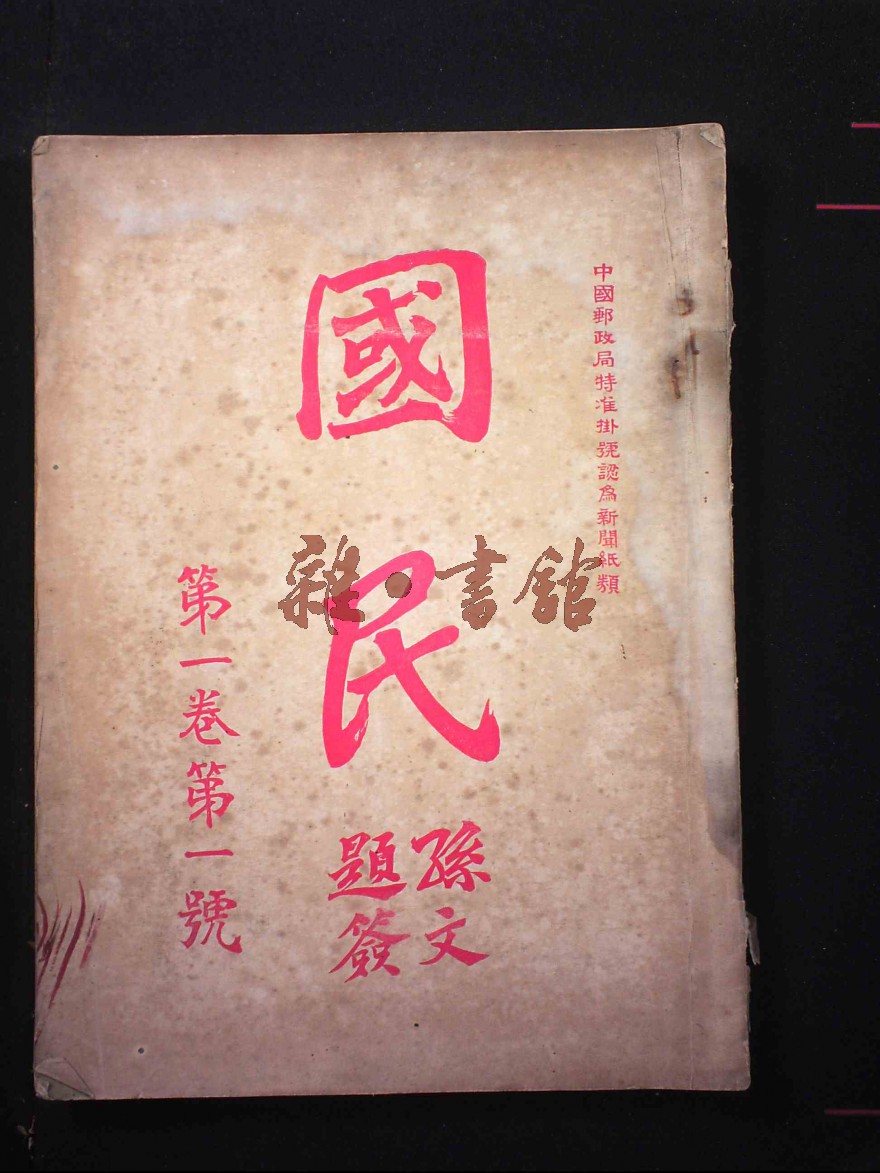 中國郵政局特准掛號認爲新聞紙類
國民
孫文
題簽
第一卷第一號
雜·書館